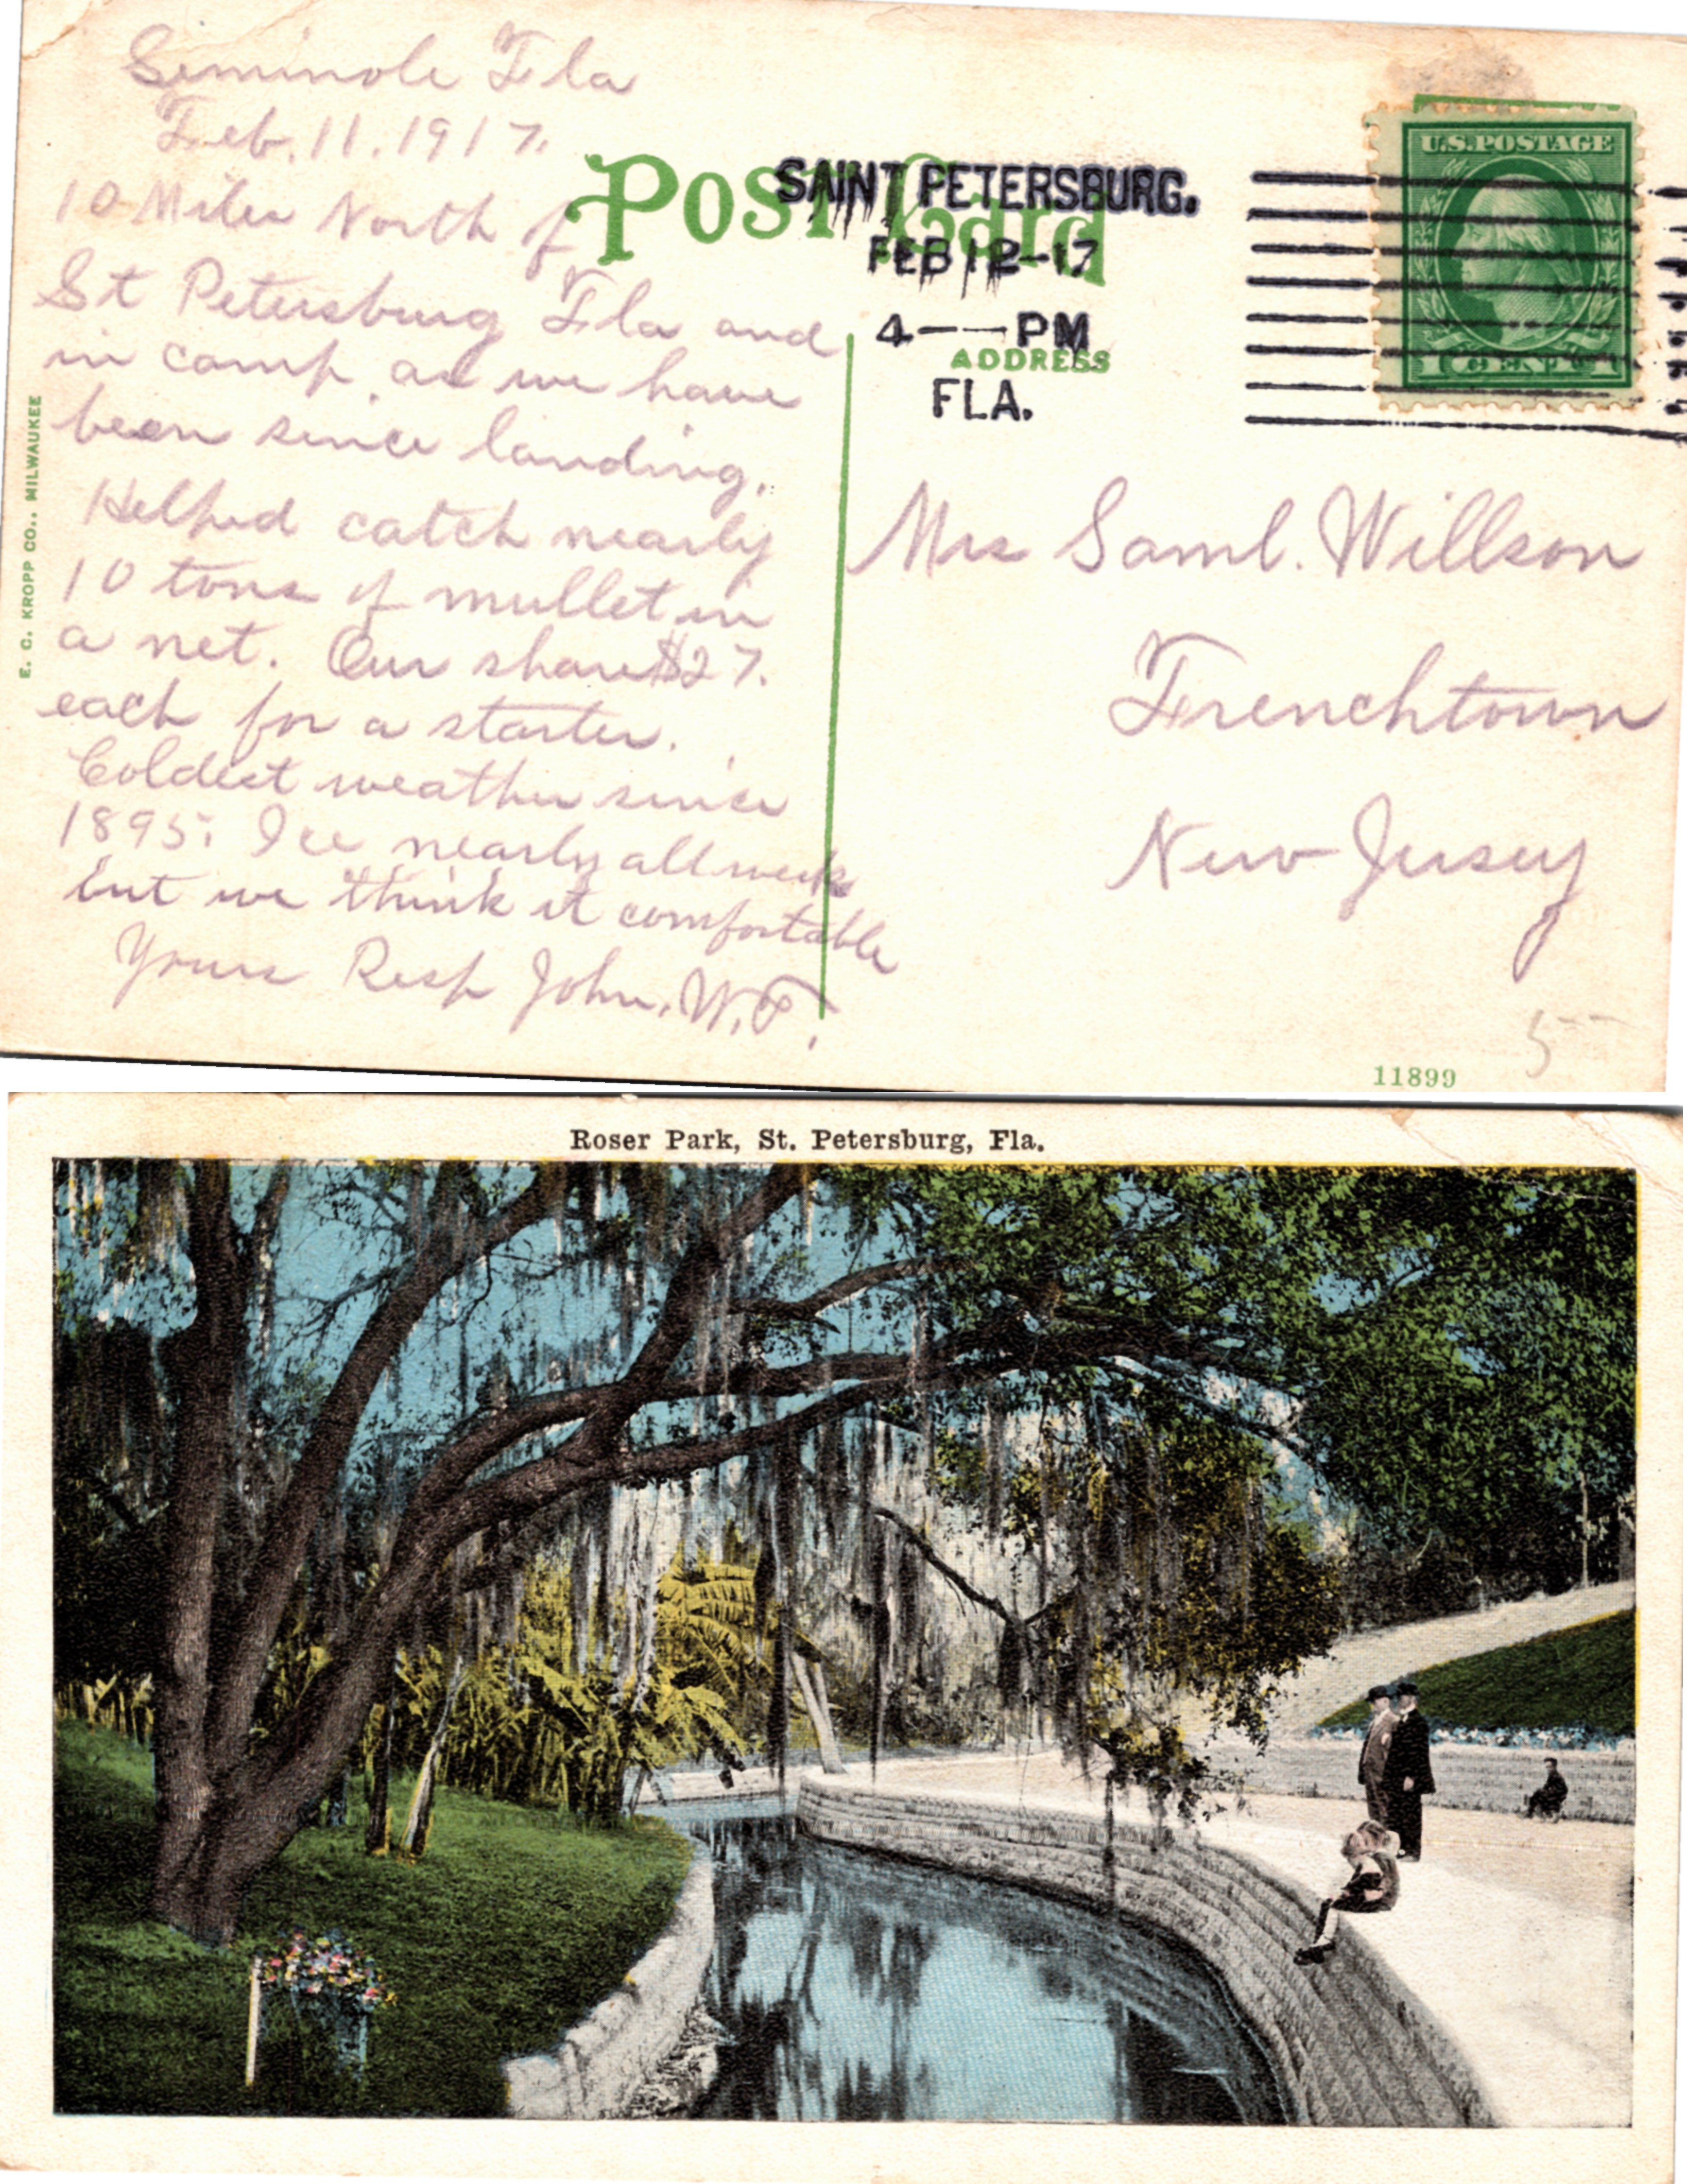 Seminole Fla
Feb. 11. 1917.
10 Miles North of
St Petersburg Fla and
in camp, as we have
been since landing.
Helped catch nearly
10 tons of mullet in
a net. Our share $27.
each for a starter.
Coldest weather since
1895. Ice nearly all week
but we think it comfortable
Yours Resp John. W.
POST Card
SAINT PETERSBURG.
FEB 12-17
4 — PM
ADDRESS
FLA.
U.S. POSTAGE
1 CENT 1
Mrs Saml. Willson
Frenchtown
New Jersey
5
11899
E. C. KROPP CO., MILWAUKEE
Roser Park, St. Petersburg, Fla.